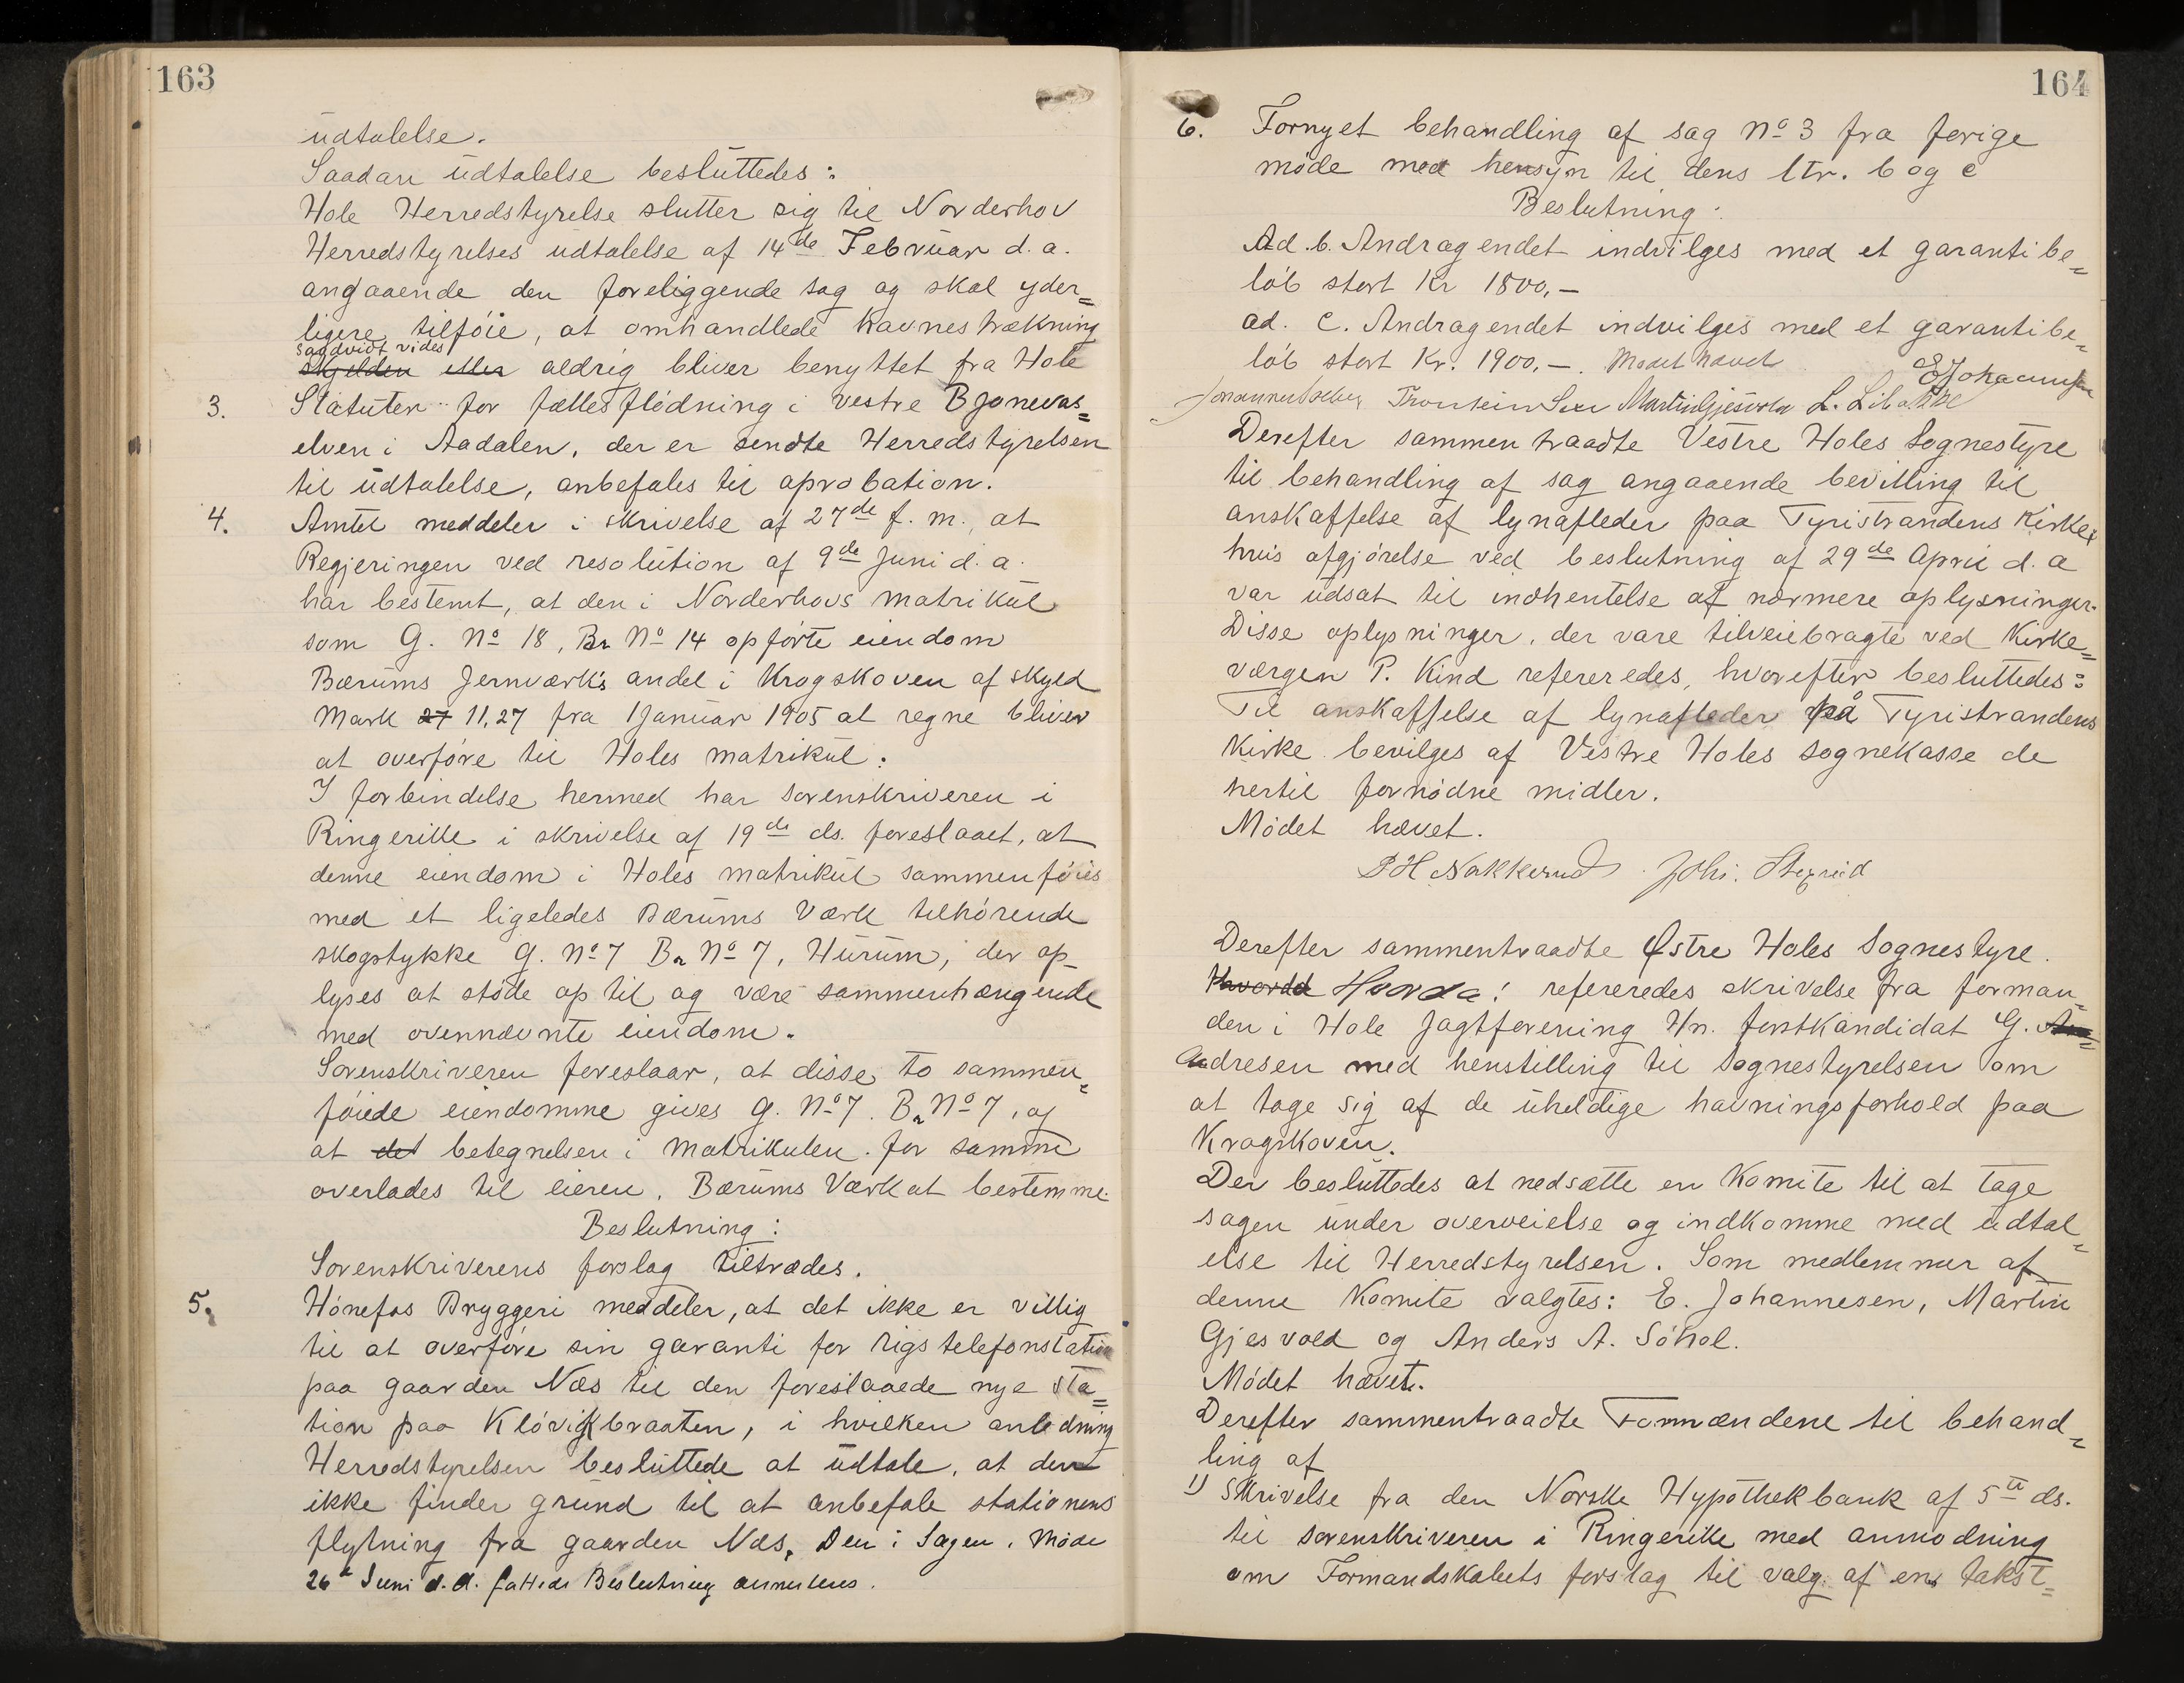 163
udtalelse.
Saadan udtalelse besluttedes:
Hole Herredstyrelse slutter sig til Norderhov
Herredstyrelses udtalelse af 14de Februar d. a.
angaaende den foreliggende sag og skal yder=
ligere tilføie, at omhandlede havnestrækning
saavidt vides
skjelden eller aldrig bliver benyttet fra Hole
3. Statuter for fællesflødning i vestre Bjonevas=
elven i Aadalen, der er sendte Herredstyrelsen
til udtalelse, anbefales til aprobation.
4. Amtet meddeler i skrivelse af 27de f. m., at
Regjeringen ved resolution af 9de Juni d. a.
har bestemt, at den i Norderhovs matrikul
som G. No 18, Br No 14 opførte eiendom
Bærums Jernværks andel i Krogskoven af skyld
Mark 27 11,27 fra 1 Januar 1905 at regne bliver
at overføre til Holes matrikul.
I forbindelse hermed har sorenskriveren i
Ringerike i skrivelse af 19de ds. foreslaaet, at
denne eiendom i Holes matrikul sammenføies
med et ligeledes Bærums Værk tilhørende
skogstykke G. No 7 Br No 7, Hurum, der op=
lyses at støde op til og være sammenhængende
med ovennævnte eiendom.
Sorenskriveren foreslaar, at disse to sammen=
føiede eiendomme gives G. No 7. Br No 7, og
at det betegnelsen i matrikulen for samme
overlades til eieren, Bærums Værk at bestemme.
Beslutning:
Sorenskriverens forslag tiltrædes.
5. Hønefos Bryggeri meddeler, at det ikke er villig
til at overføre sin garanti for rigstelefonstation
paa gaarden Næs til den foreslaaede nye sta=
tion paa Kløvikbraaten, i hvilken anledning
Herredstyrelsen besluttede at udtale, at den
ikke finder grund til at anbefale stationens
flytning fra gaarden Næs. Den i Sagen i Møde
26de Juni d. A. fattede Beslutning annuleres.
164
6. Fornyet behandling af sag No 3 fra forige
møde med hensyn til dens ltr. b og c
Beslutning:
Ad. b. Andragendet indvilges med et garantibe=
løb stort Kr 1800,—
ad. c. Andragendet indvilges med et garantibe=
løb stort Kr. 1900,—. Mødet hævet
E Johannesen
Martin Gjesvold
Derefter sammentraadte Vestre Holes Sognestyre
til behandling af sag angaaende bevilling til
anskaffelse af lynafleder paa Tyristrandens Kirke,
hvis afgjørelse ved beslutning af 29de April d. a
var udsat til indhentelse af nærmere oplysninger.
Disse oplysninger, der vare tilveiebragte ved Kirke=
værgen P. Kind refereredes, hvorefter besluttedes:
Til anskaffelse af lynafleder på Tyristrandens
Kirke bevilges af Vestre Holes sognekasse de
hertil fornødne midler.
Mødet hævet.
P H Nakkerud
Derefter sammentraadte Østre Holes Sognestyre.
Hvorda Hvorda! refereredes skrivelse fra forman=
den i Hole Jagtforening Hr. forstkandidat G. An=
Andresen med henstilling til sognestyrelsen om
at tage sig af de uheldige havningsforhold paa
Krogskoven.
Der besluttedes at nedsætte en Komite til at tage
sagen under overveielse og indkomme med udtal=
else til Herredstyrelsen. Som medlemmer af
denne Komite valgtes: E. Johannesen, Martin
Gjesvold og Anders A. Søhol.
Mødet hævet.
Derefter sammentraadte Formændene til behand=
ling af
1) Skrivelse fra den Norske Hypothekbank af 5te ds.
til sorenskriveren i Ringerike med anmodning
om Formandskabets forslag til valg af en takst=